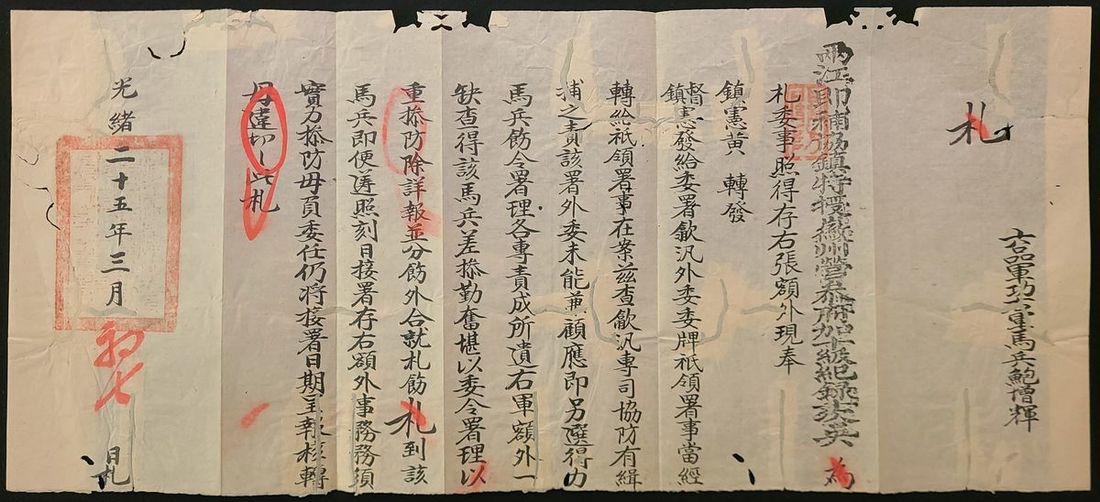 札
六品軍功右軍馬兵鮑增輝
兩江即補協鎮特授徽州營參府加十級紀錄李英 為
札委事照得存右張額外現奉
鎮憲黃 轉發
督鎮憲發給委署歙汛外委委牌祇領署事當經
轉給祇領署事在案茲查歙汛專司協防有緝
捕之責該署外委未能兼顧應即另選得力
馬兵飭令署理各專責成所遺右軍額外一
缺查得該馬兵差操勤奮堪以委令署理以
重操防除詳報並分飭外合就札飭札到該
馬兵即便遵照刻日接署存右額外事務務須
實力操防毋負委任仍將接署日期具報核轉
毋違切切此札
光緒二十五年三月初七日札